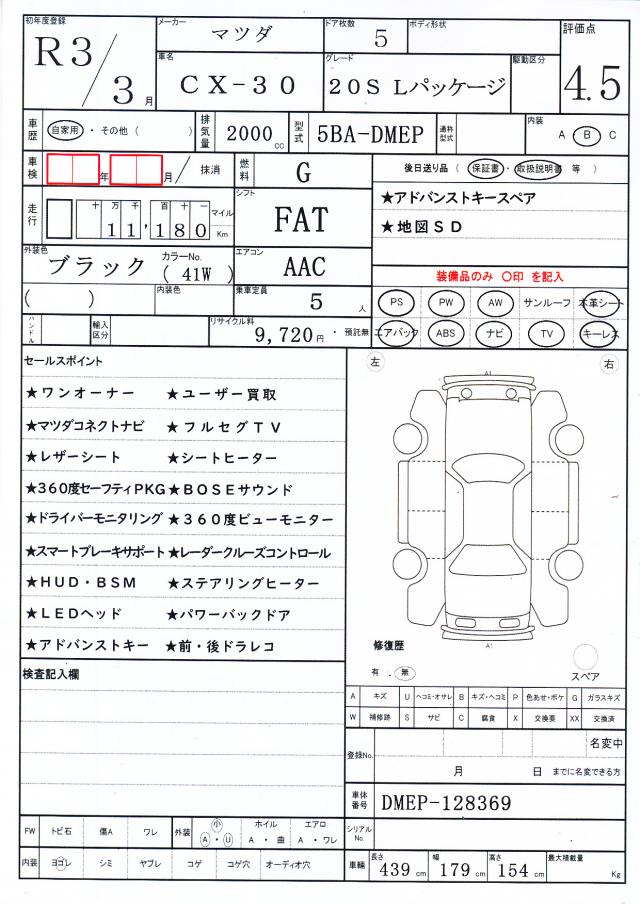 初年度登録 R3/3月 メーカー マツダ ドア枚数 5 ボディ形状 評価点
車名 CX-30 グレード 20S Lパッケージ 駆動区分 4.5
車歴 自家用・その他( ) 排気量 2000cc 型式 5BA-DMEP 通称型式 内装 A B C
車検 年 月/抹消 燃料 G 後日送り品(保証書・取扱説明書 等)
走行 十万千百十一 11,180 マイル Km シフト FAT ★アドバンストキースペア
★地図SD
外装色 ブラック カラーNo. (41W) エアコン AAC 装備品のみ 〇印 を記入
( ) 内装色 乗車定員 5人 PS PW AW サンルーフ 本革シート
ハンドル 輸入区分 リサイクル料 9,720円・預託無 エアバック ABS ナビ TV キーレス
セールスポイント 左 右
★ワンオーナー ★ユーザー買取
★マツダコネクトナビ ★フルセグTV
★レザーシート ★シートヒーター
★360度セーフティPKG★BOSEサウンド
★ドライバーモニタリング ★360度ビューモニター
★スマートブレーキサポート★レーダークルーズコントロール
★HUD・BSM ★ステアリングヒーター
★LEDヘッド ★パワーバックドア
★アドバンストキー ★前・後ドラレコ
A1
A1
修復歴
有.無 スペア
検査記入欄
A キズ U ヘコミ・オサレ B キズ・ヘコミ P 色あせ・ボケ G ガラスキズ
W 補修跡 S サビ C 腐食 X 交換要 XX 交換済
登録No. 名変中
月 日 までに名変できる方
車体番号 DMEP-128369
FW トビ石 傷A ワレ 外装 小 A・U ホイル A・曲 エアロ A・ワレ シリアルNo.
内装 ヨゴレ シミ ヤブレ コゲ コゲ穴 オーディオ穴 車輛 長さ 439cm 幅 179cm 高さ 154cm 最大積載量 Kg